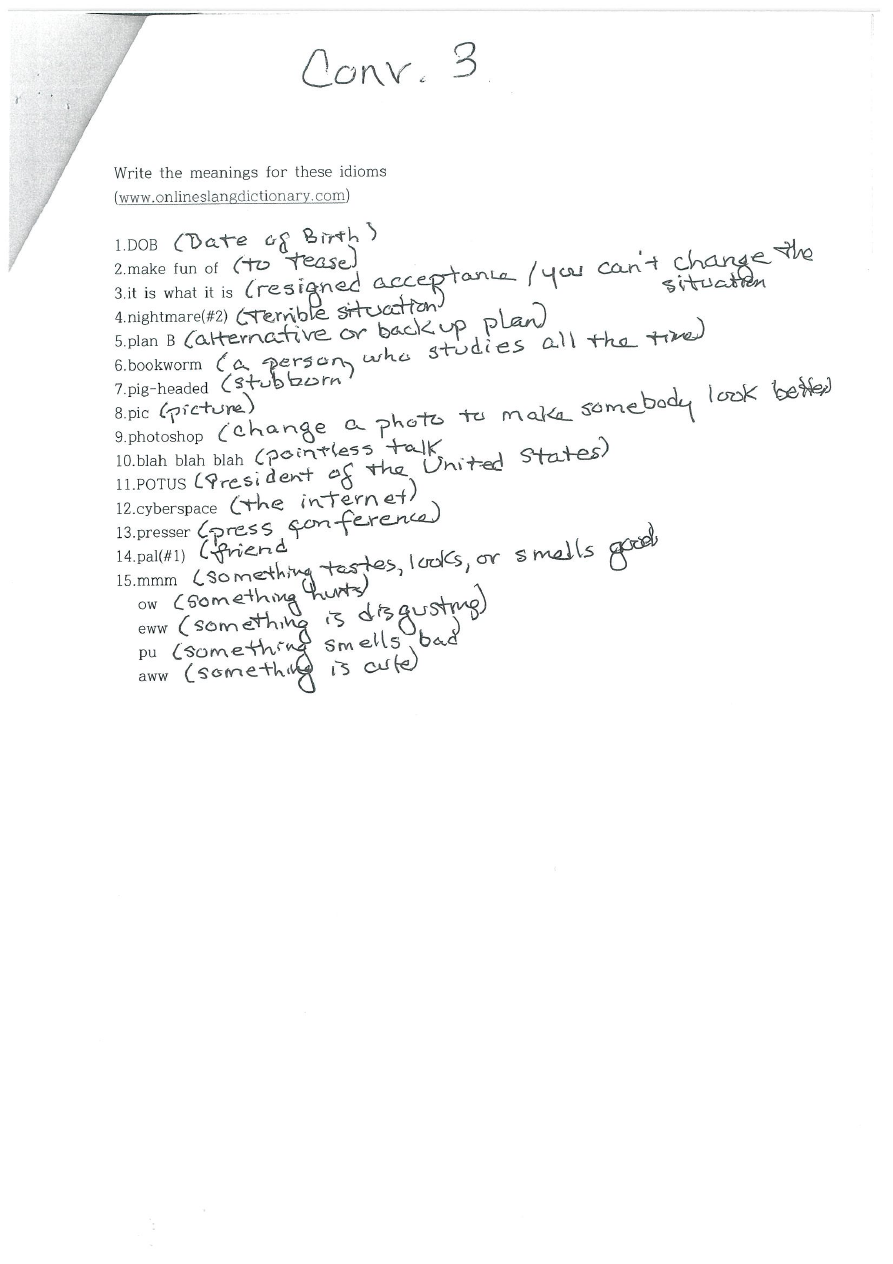 Conv. 3
Write the meanings for these idioms
(www.onlineslangdictionary.com)
1.DOB (Date of Birth)
2.make fun of (to tease)
3.it is what it is (resigned acceptance / you can't change the
situation
4.nightmare(#2) (terrible situation)
5.plan B (alternative or back up plan)
6.bookworm (a person who studies all the time)
7.pig-headed (stubborn
8.pic (picture)
9.photoshop (change a photo to make somebody look better)
10.blah blah blah (pointless talk
11.POTUS (President of the United States)
12.cyberspace (the internet)
13.presser (press conference)
14.pal(#1) (friend
15.mmm (something tastes, looks, or smells good
ow (something hurts)
eww (something is disgusting)
pu (something smells bad
aww (something is cute)